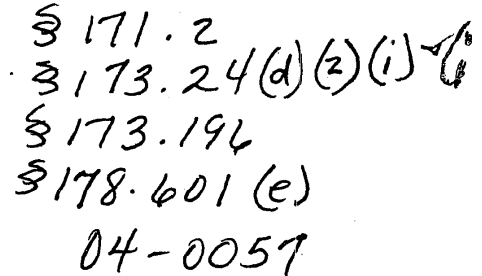 § 171.2
§ 173.24(d)(2)(i)
§ 173.196
§ 178.601 (e)
04-0057